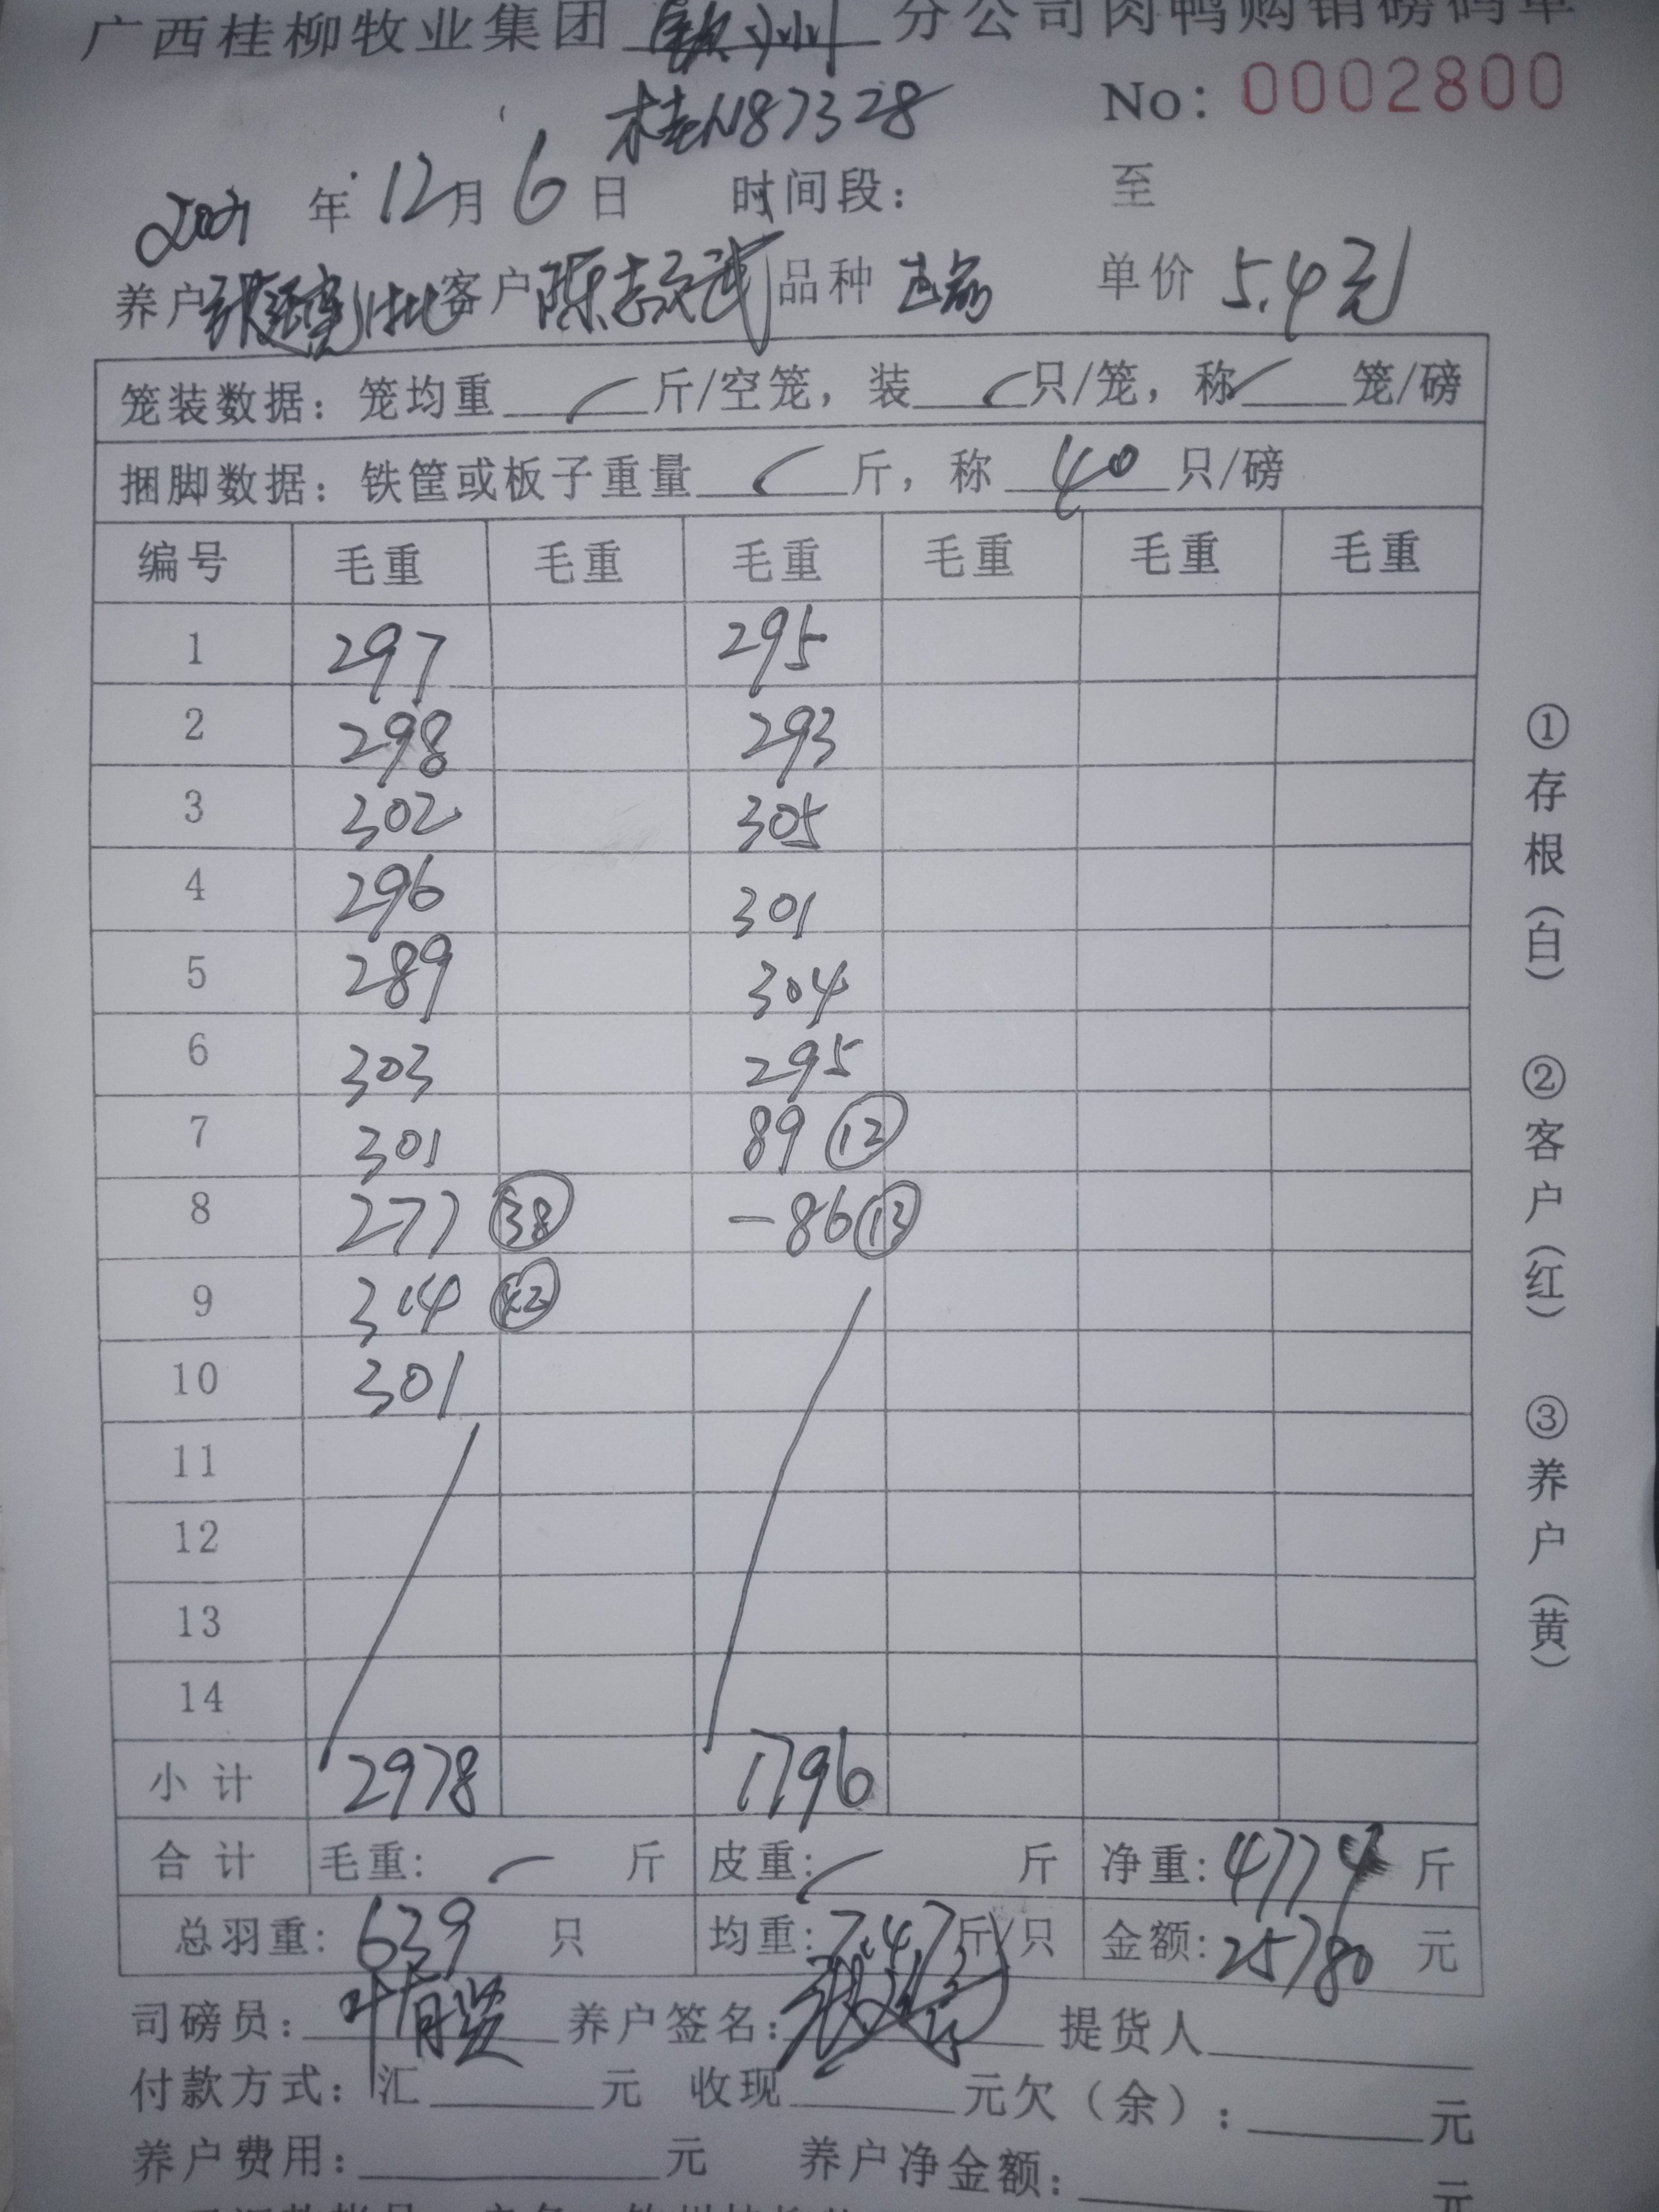 广西桂柳牧业集团 钦州 分公司肉鸭购销磅码单
桂N87328
No: 0002800
2021 年 12 月 6 日 时间段: 至
养户 批 客户 陈志武 品种 单价 5.4元
笼装数据: 笼均重 斤/空笼, 装 只/笼, 称 笼/磅
捆脚数据: 铁筐或板子重量 斤, 称 40 只/磅
编号 毛重 毛重 毛重 毛重 毛重 毛重
1 297 295
2 298 293
3 302 305
4 296 301
5 289 304
6 303 295
7 301 89 ⑫
8 277 ㊳ -86 ⑬
9 314 ㊷
10 301
11
12
13
14
小计 2978 1796
合计 毛重: 斤 皮重: 斤 净重: 4774 斤
总羽重: 639 只 均重: 7.47 斤/只 金额: 25780 元
司磅员: 叶有贤 养户签名: 提货人
付款方式: 汇 元 收现 元欠(余): 元
养户费用: 元 养户净金额: 元
①存根(白) ②客户(红) ③养户(黄)